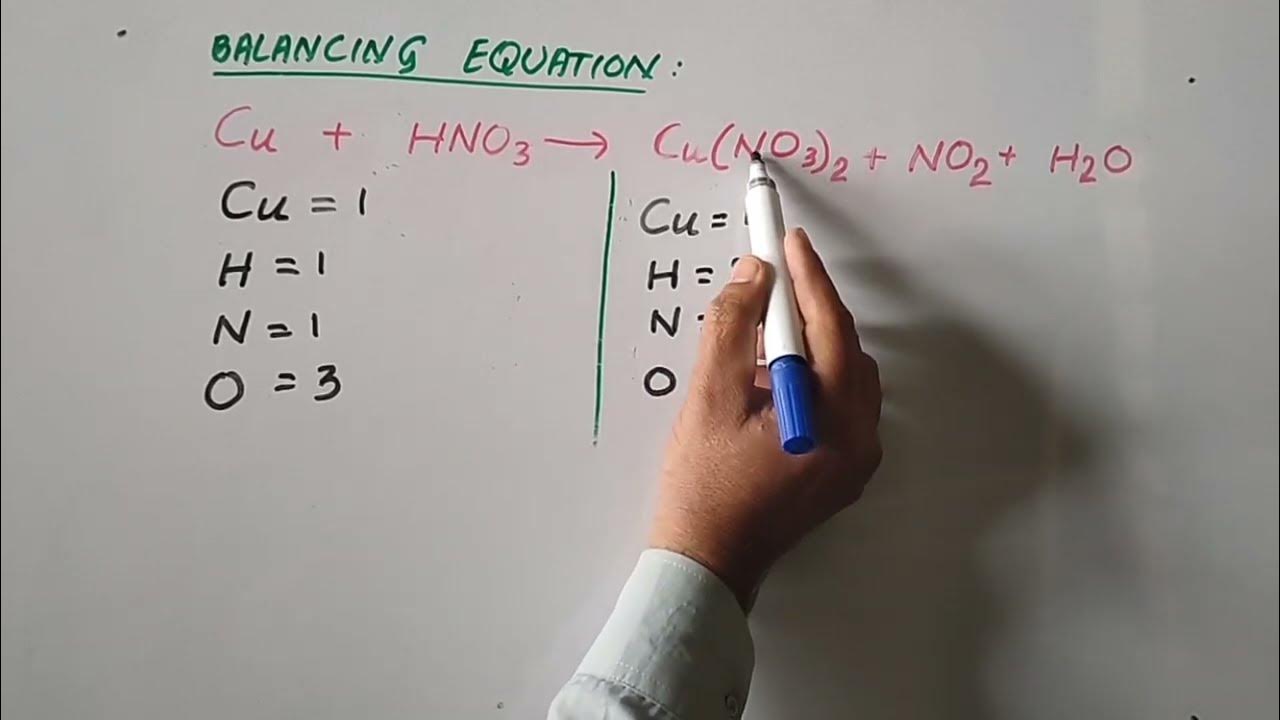 BALANCING EQUATION:
Cu + HNO₃ → Cu(NO₃)₂ + NO₂ + H₂O
Cu = 1
H = 1
N = 1
O = 3
Cu =
H =
N
O